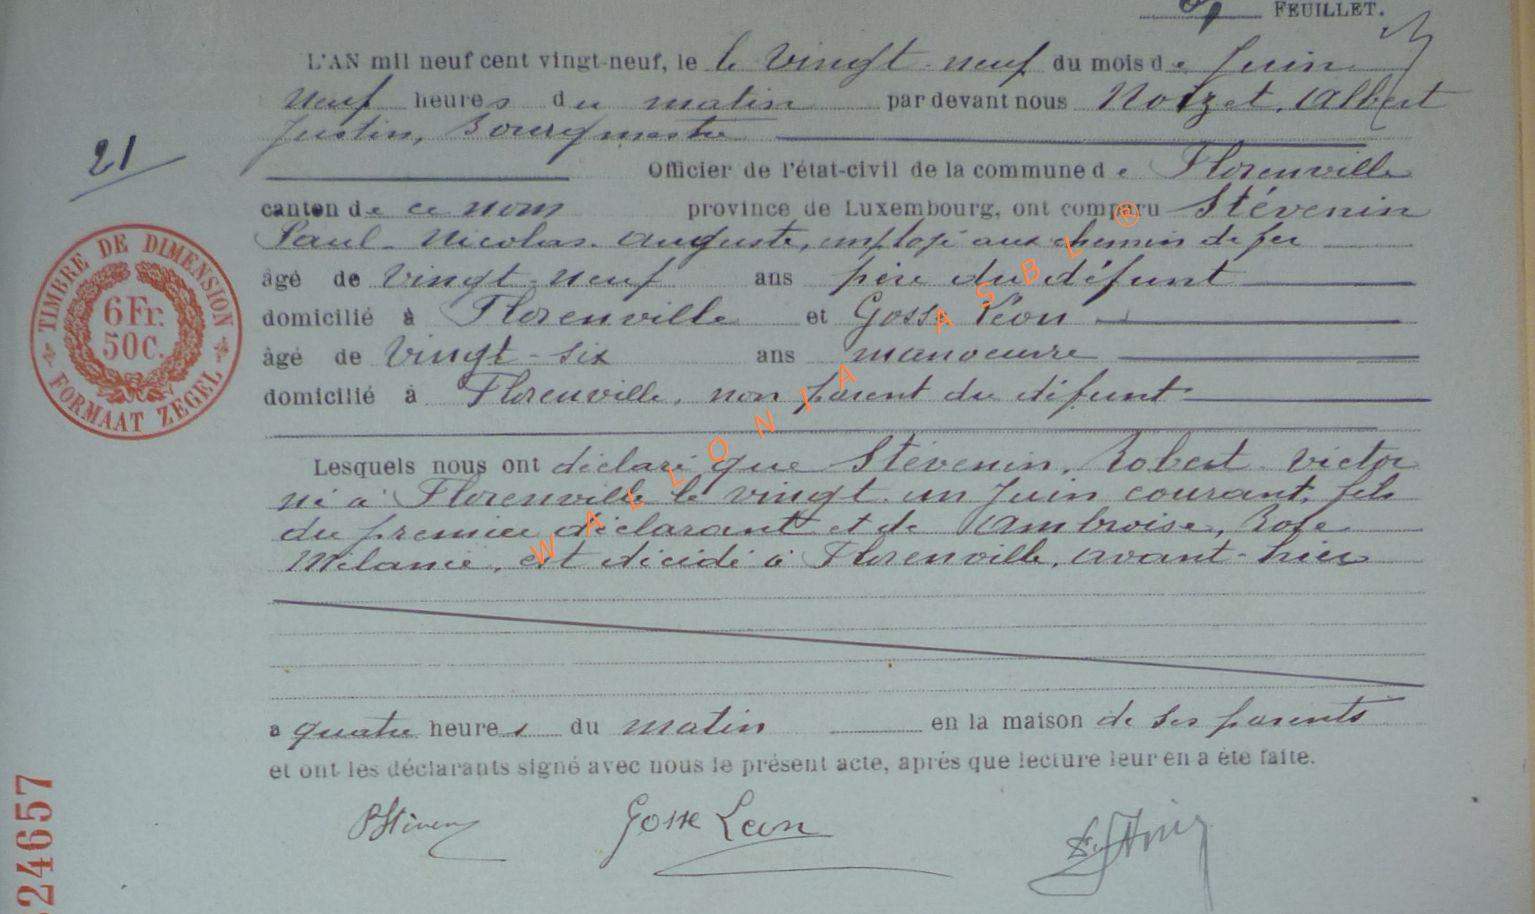 FEUILLET.
L'AN mil neuf cent vingt-neuf, le le vingt-neuf du mois de Juin
neuf heures du matin par devant nous Noizet, Albert
21
Justin, Bourgmestre
Officier de l'état-civil de la commune de Florenville
canton de ce nom province de Luxembourg, ont comparu Stévenin
Paul-Nicolas-Auguste, employé aux chemin de fer
âgé de vingt-neuf ans père du défunt
domicilié à Florenville et Gosse Léon
âgé de vingt-six ans manoeuvre
domicilié à Florenville, non parent du défunt
TIMBRE DE DIMENSION
6 Fr.
50 C.
FORMAAT ZEGEL
Lesquels nous ont déclaré que Stévenin, Robert Victor
né à Florenville le vingt-un Juin courant, fils
du premier déclarant et de Ambroise, Rose
Mélanie, est décédé à Florenville, avant-hier
WALLONIA ASBL ®
a quatre heures du matin en la maison de ses parents
et ont les déclarants signé avec nous le présent acte, après que lecture leur en a été faite.
PStévenin Gosse Léon
24657